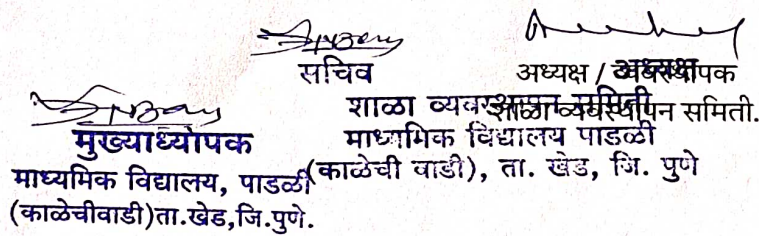 सचिव
अध्यक्ष / व्यवस्थापक
अध्यक्ष
शाळा व्यवस्थापन समिती
शाळा व्यवस्थापन समिती.
माध्यमिक विद्यालय पाडळी
(काळेची वाडी), ता. खेड, जि. पुणे
मुख्याध्यापक
माध्यमिक विद्यालय, पाडळी
(काळेचीवाडी)ता.खेड,जि.पुणे.